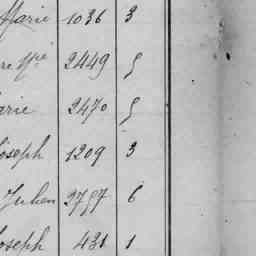 Marie 1036 3
re Vve 2449 5
arie 2470 5
Joseph 1209 3
Julien 2757 6
Joseph 431 1